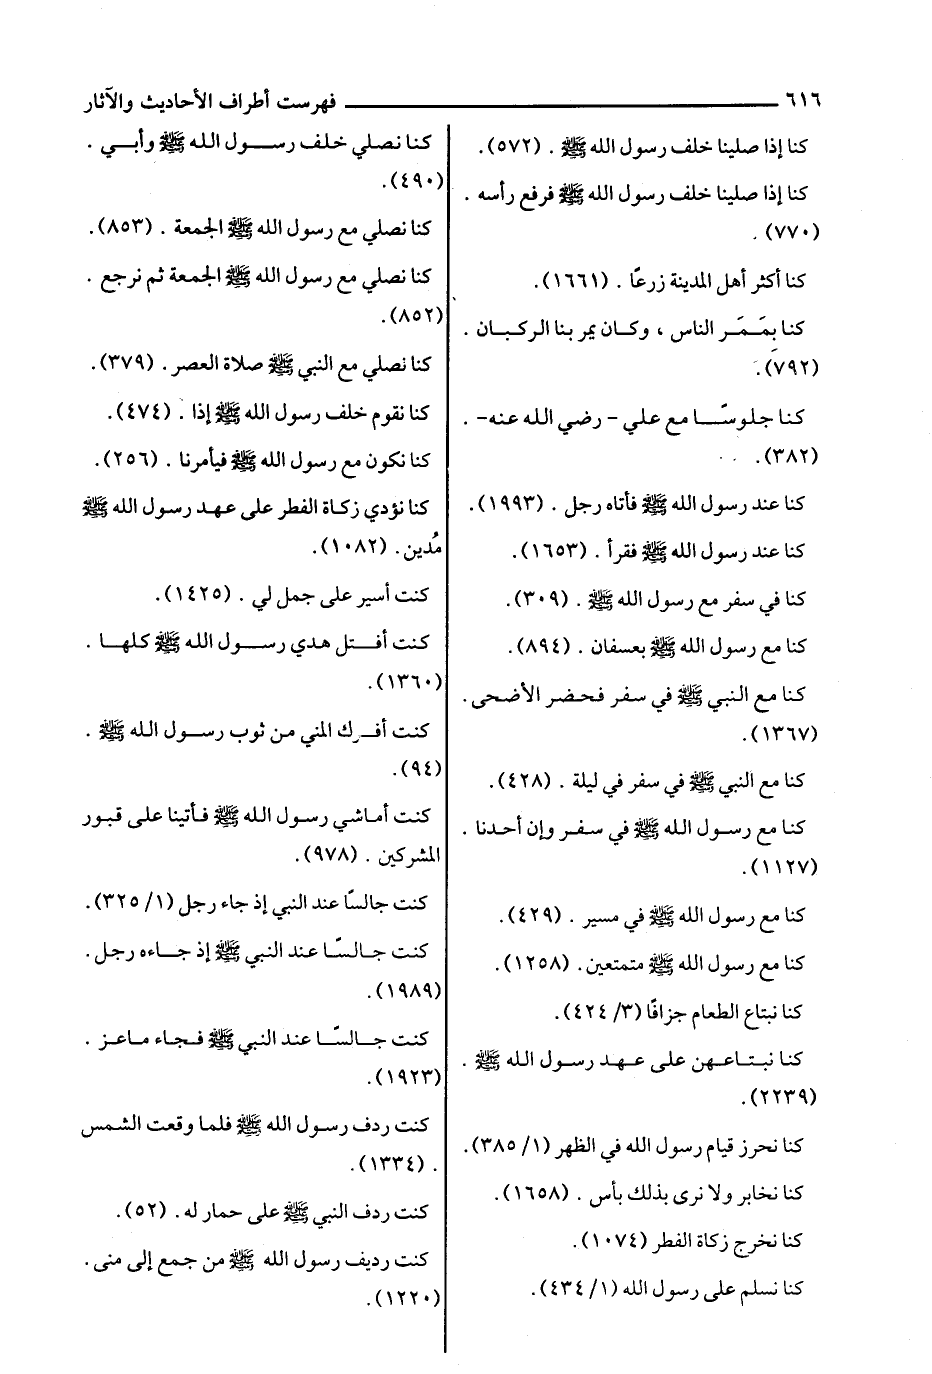 ٦١٦ ــــــــــ فهرست أطراف الأحاديث والآثار
كنا إذا صلينا خلف رسول الله ﷺ . (٥٧٢).
كنا إذا صلينا خلف رسول الله ﷺ فرفع رأسه .
(٧٧٠) .
كنا أكثر أهل المدينة زرعًا . (١٦٦١).
كنا بمَمَر الناس ، وكان يمر بنا الركبان .
(٧٩٢).
كنا جلوسًا مع علي - رضي الله عنه- .
(٣٨٢).
كنا عند رسول الله ﷺ فأتاه رجل . (١٩٩٣).
كنا عند رسول الله ﷺ فقرأ . (١٦٥٣).
كنا في سفر مع رسول الله ﷺ . (٣٠٩).
كنا مع رسول الله ﷺ بعسفان . (٨٩٤).
كنا مع النبي ﷺ في سفر فحضر الأضحى.
(١٣٦٧).
كنا مع النبي ﷺ في سفر في ليلة . (٤٢٨).
كنا مع رسول الله ﷺ في سفر وإن أحدنا .
(١١٢٧).
كنا مع رسول الله ﷺ في مسير . (٤٢٩).
كنا مع رسول الله ﷺ متمتعين. (١٢٥٨).
كنا نبتاع الطعام جزافًا (٣/ ٤٢٤).
كنا نبتاعهن على عهد رسول الله ﷺ .
(٢٢٣٩).
كنا نحرز قيام رسول الله في الظهر (١/ ٣٨٥).
كنا نخابر ولا نرى بذلك بأس . (١٦٥٨).
كنا نخرج زكاة الفطر (١٠٧٤).
كنا نسلم على رسول الله (١/ ٤٣٤).
كنا نصلي خلف رسول الله ﷺ وأبي .
(٤٩٠).
كنا نصلي مع رسول الله ﷺ الجمعة . (٨٥٣).
كنا نصلي مع رسول الله ﷺ الجمعة ثم نرجع .
(٨٥٢).
كنا نصلي مع النبي ﷺ صلاة العصر. (٣٧٩).
كنا نقوم خلف رسول الله ﷺ إذا . (٤٧٤).
كنا نكون مع رسول الله ﷺ فيأمرنا . (٢٥٦).
كنا نؤدي زكاة الفطر على عهد رسول الله ﷺ
مُدين. (١٠٨٢).
كنت أسير على جمل لي . (١٤٢٥).
كنت أفتل هدي رسول الله ﷺ كلها .
(١٣٦٠).
كنت أفرك المني من ثوب رسول الله ﷺ .
(٩٤).
كنت أماشي رسول الله ﷺ فأتينا على قبور
المشركين . (٩٧٨).
كنت جالسًا عند النبي إذ جاء رجل (١/ ٣٢٥).
كنت جالسًا عند النبي ﷺ إذ جاءه رجل.
(١٩٨٩).
كنت جالسًا عند النبي ﷺ فجاء ماعز .
(١٩٢٣).
كنت ردف رسول الله ﷺ فلما وقعت الشمس
. (١٣٣٤).
كنت ردف النبي ﷺ على حمار له. (٥٢).
كنت رديف رسول الله ﷺ من جمع إلى منى.
(١٢٢٠).